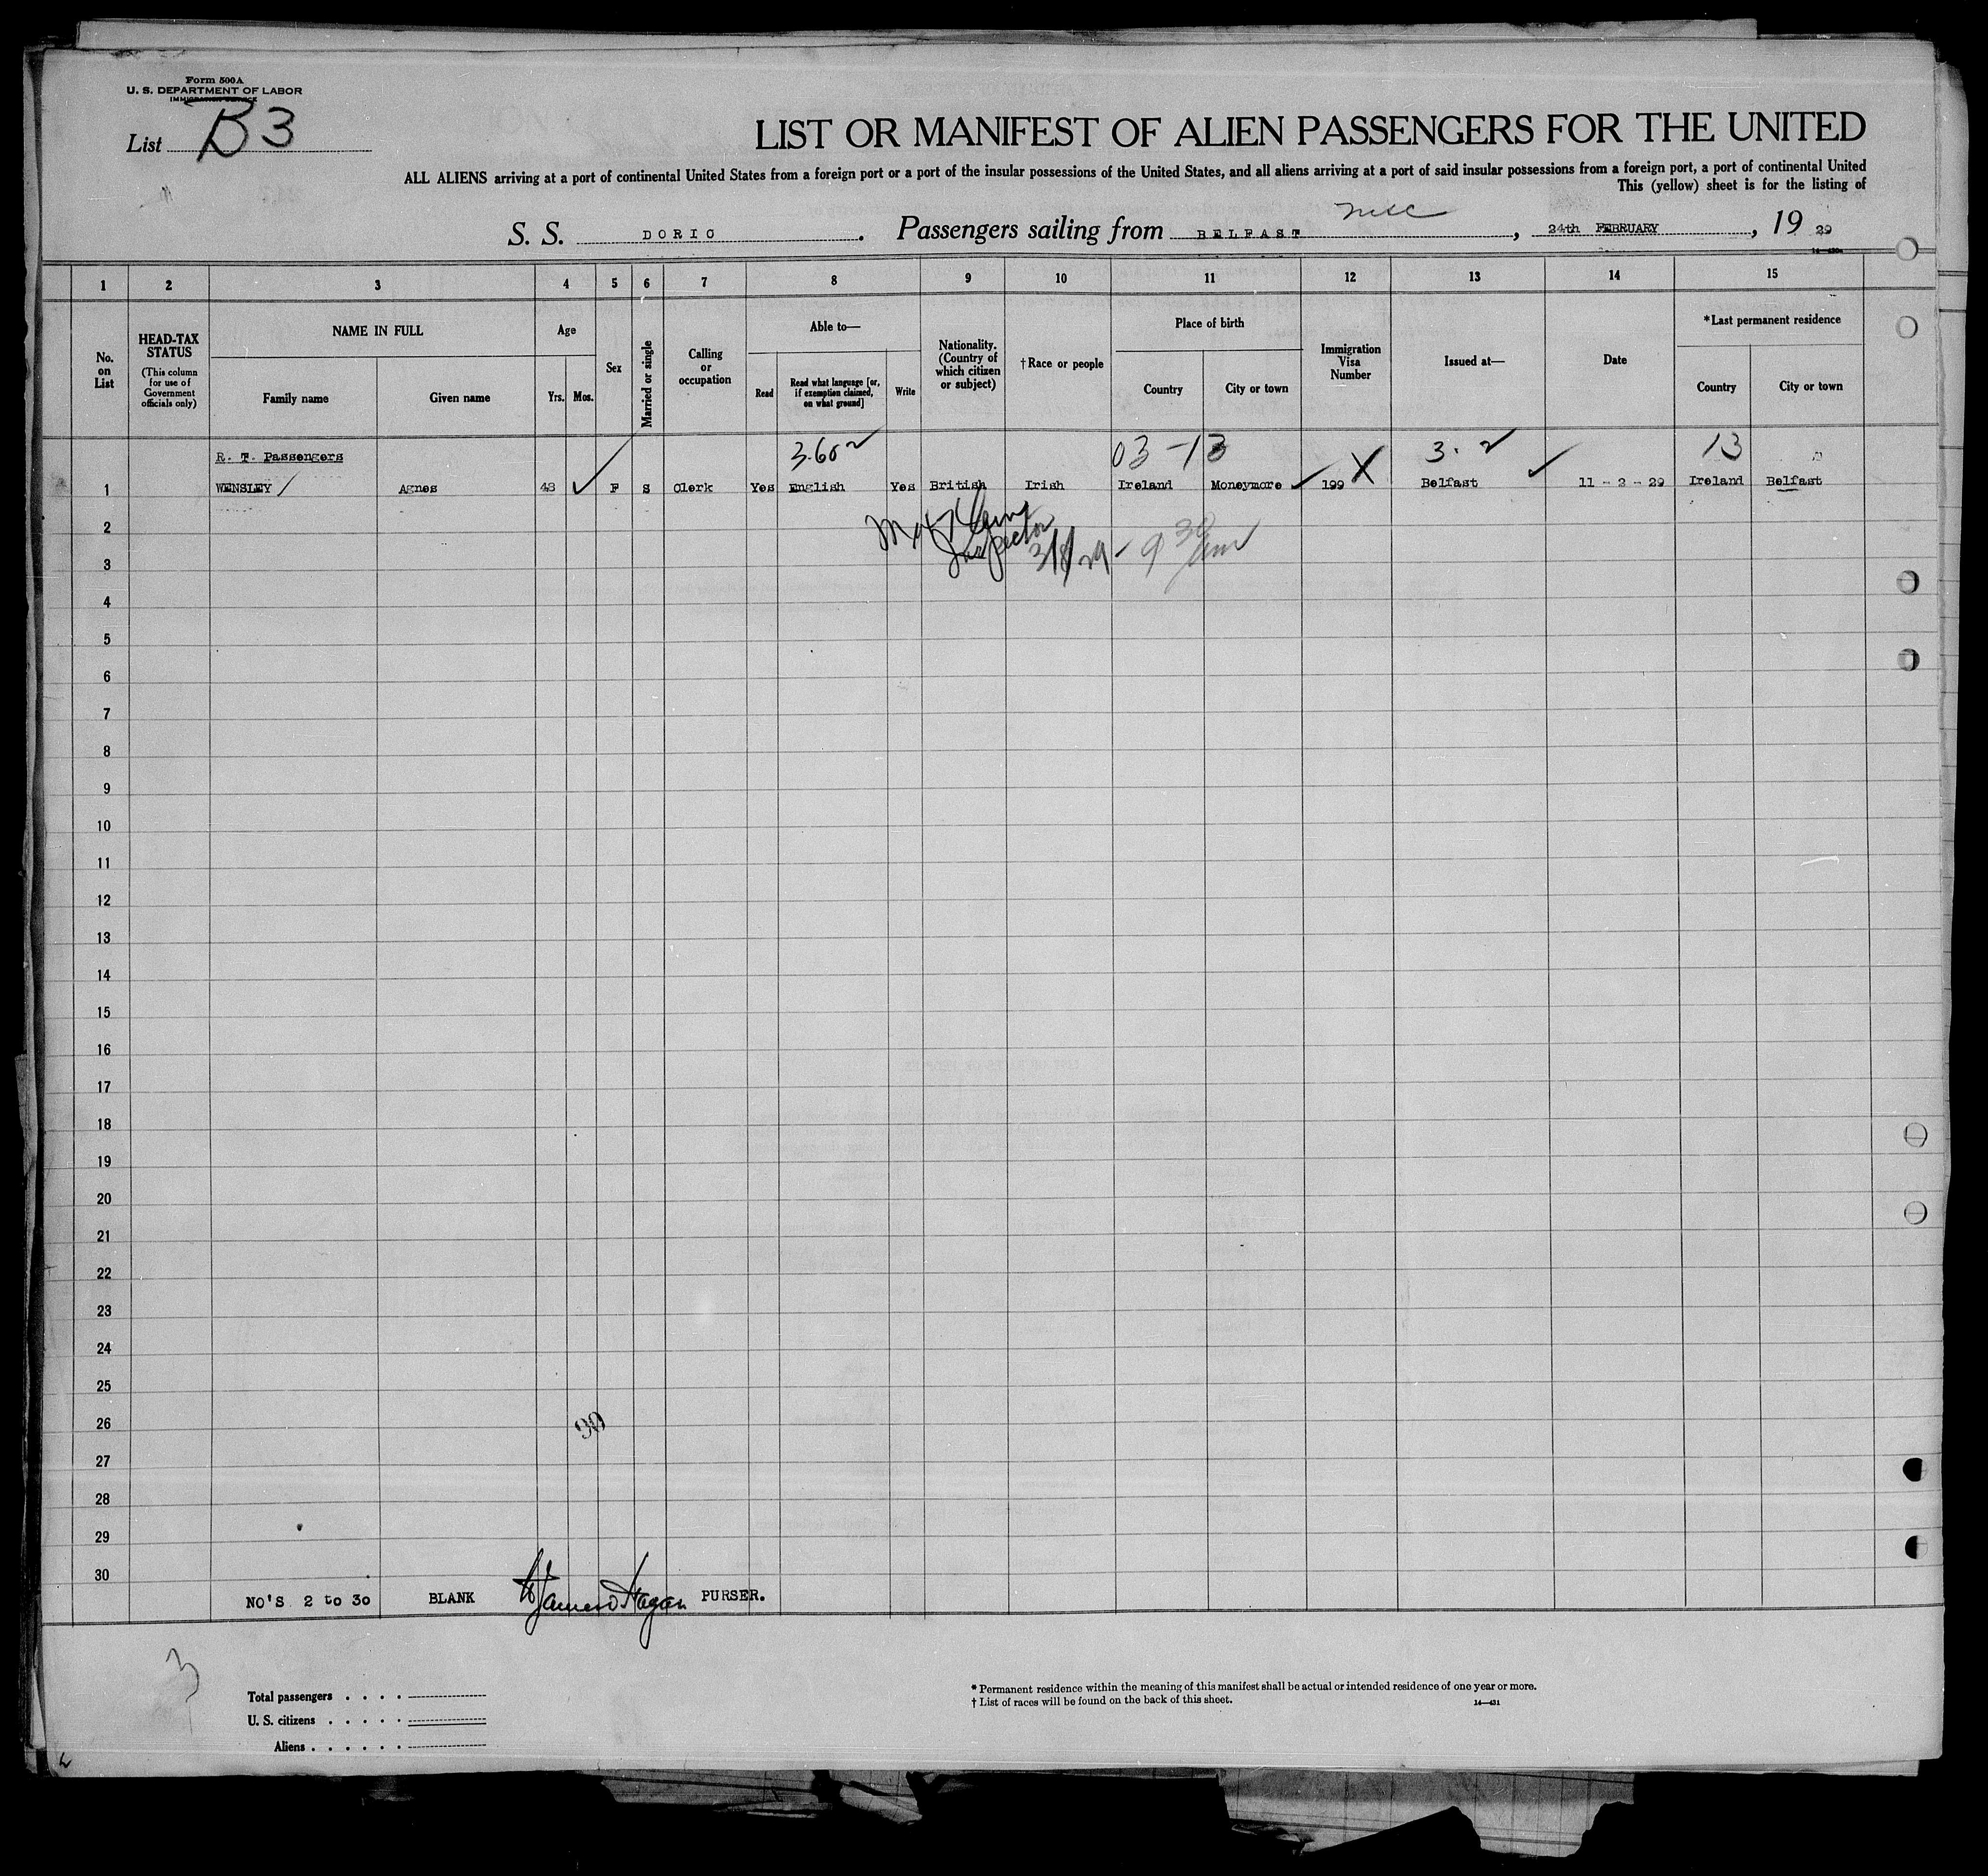 Form 500A
U. S. DEPARTMENT OF LABOR
IMMIGRATION SERVICE
List B3
LIST OR MANIFEST OF ALIEN PASSENGERS FOR THE UNITED
ALL ALIENS arriving at a port of continental United States from a foreign port or a port of the insular possessions of the United States, and all aliens arriving at a port of said insular possessions from a foreign port, a port of continental United
This (yellow) sheet is for the listing of
S. S. DORIC. Passengers sailing from BELFAST, 24th FEBRUARY, 19 29
1 2 3 4 5 6 7 8 9 10 11 12 13 14 15
No. on List
HEAD-TAX STATUS
(This column for use of Government officials only)
NAME IN FULL
Family name Given name
Age
Yrs. Mos.
Sex
Married or single
Calling or occupation
Able to—
Read
Read what language [or, if exemption claimed, on what ground]
Write
Nationality. (Country of which citizen or subject)
†Race or people
Place of birth
Country City or town
Immigration Visa Number
Issued at—
Date
*Last permanent residence
Country City or town
R. T. Passengers 3.60 03-13 3. 2 13
1 WENSLEY Agnes 43 F S Clerk Yes English Yes British Irish Ireland Moneymore 199 X Belfast 11 - 2 - 29 Ireland Belfast
2
Inspector 3/8/29 - 9 30 am
3
4
5
6
7
8
9
10
11
12
13
14
15
16
17
18
19
20
21
22
23
24
25
26
27
28
29
30
NO'S 2 to 30 BLANK PURSER.
3
Total passengers
U. S. citizens
Aliens
* Permanent residence within the meaning of this manifest shall be actual or intended residence of one year or more.
† List of races will be found on the back of this sheet. 14—431